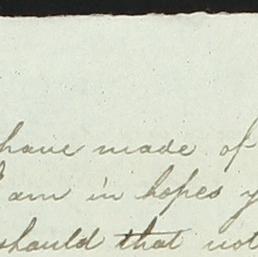 have made of
I am in hopes y
should that not